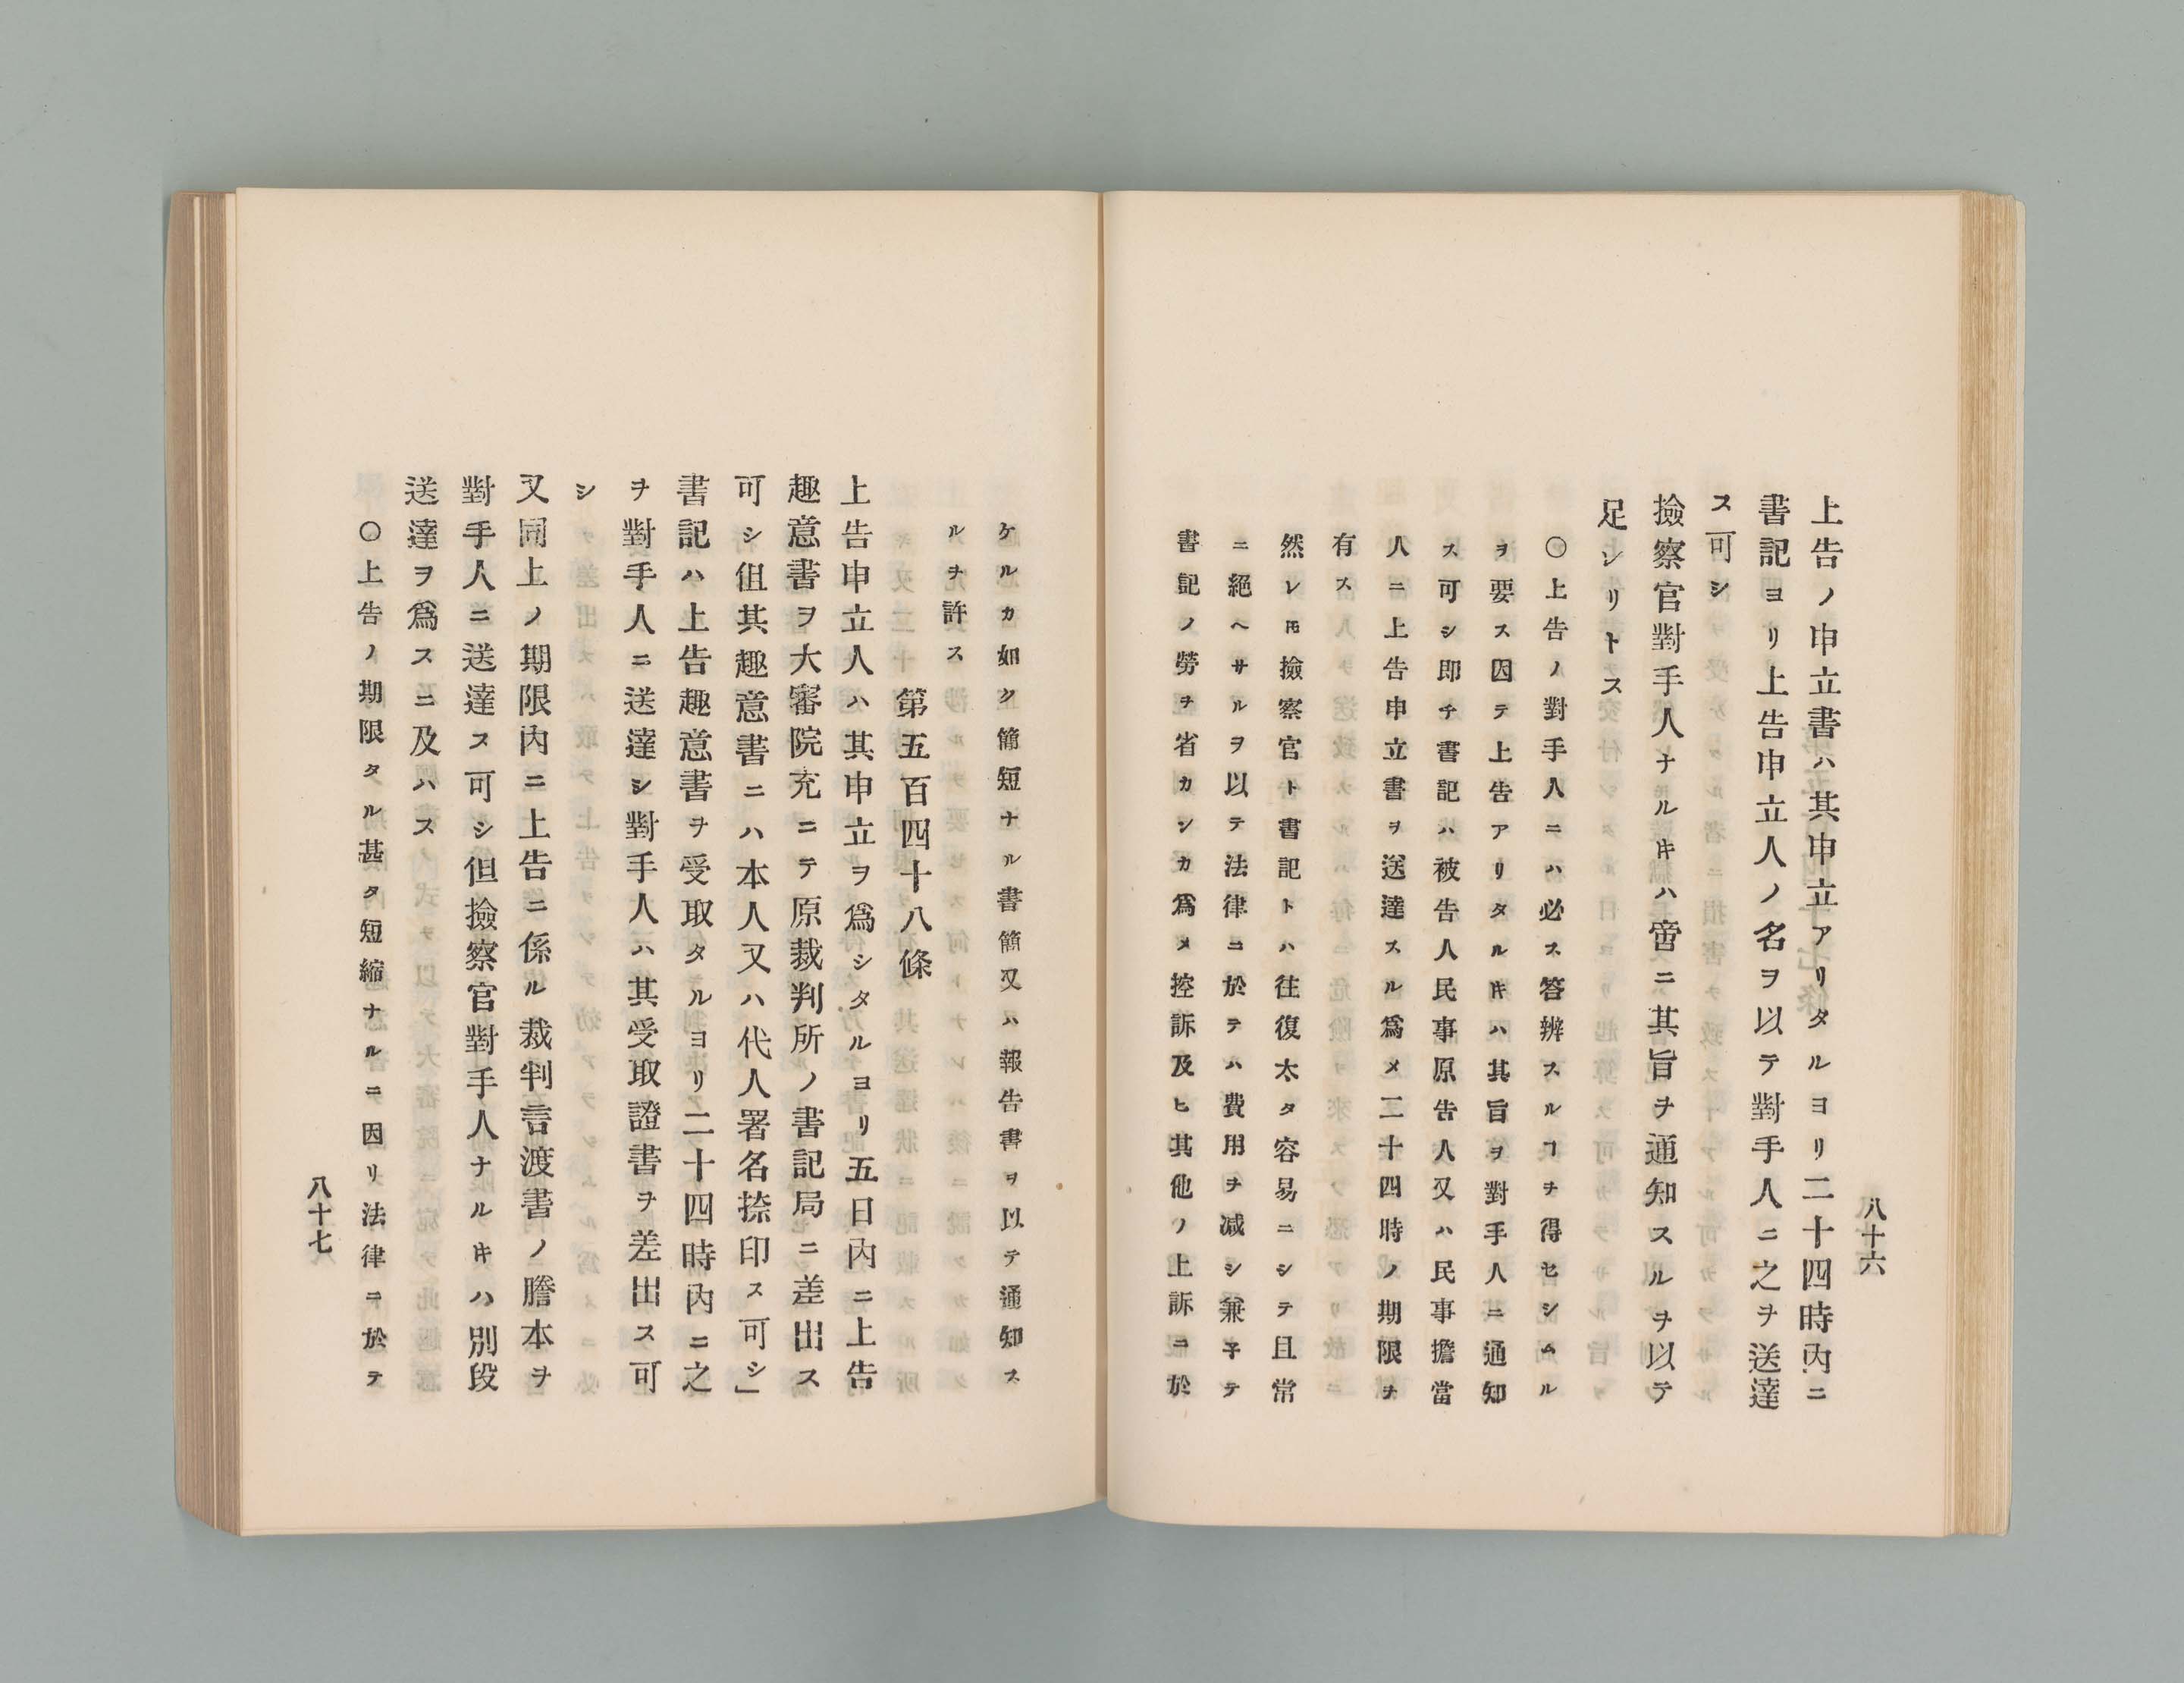 八十六
上告ノ申立書ハ其申立アリタルヨリ二十四時內ニ
書記ヨリ上告申立人ノ名ヲ以テ對手人ニ之ヲ送達
ス可シ
撿察官對手人ナルキハ啻ニ其旨ヲ通知スルヲ以テ
足レリトス
〇上告ノ對手人ニハ必ス答辨スルヿヲ得セシムル
ヲ要ス因テ上告アリタルキハ其旨ヲ對手人ニ通知
ス可シ即チ書記ハ被告人民事原告人又ハ民事擔當
人ニ上告申立書ヲ送達スル爲メ二十四時ノ期限ヲ
有ス
然レ𪜈撿察官ト書記トハ往復太タ容易ニシテ且常
ニ絕ヘサルヲ以テ法律ニ於テハ費用ヲ减シ兼子テ
書記ノ勞ヲ省カンカ爲メ控訴及ヒ其他ノ上訴ニ於
ケルカ如ク簡短ナル書簡又ハ報告書ヲ以テ通知ス
ルヲ許ス
第五百四十八條
上告申立人ハ其申立ヲ爲シタルヨリ五日內ニ上告
趣意書ヲ大審院充ニテ原裁判所ノ書記局ニ差出ス
可シ伹其趣意書ニハ本人又ハ代人署名捺印ス可シ」
書記ハ上告趣意書ヲ受取タルヨリ二十四時內ニ之
ヲ對手人ニ送達シ對手人ハ其受取證書ヲ差出ス可
シ
又同上ノ期限內ニ上告ニ係ル裁判言渡書ノ謄本ヲ
對手人ニ送達ス可シ但撿察官對手人ナルキハ別段
送達ヲ爲スニ及ハス
〇上告ノ期限タル甚タ短縮ナルニ因リ法律ニ於テ
八十七